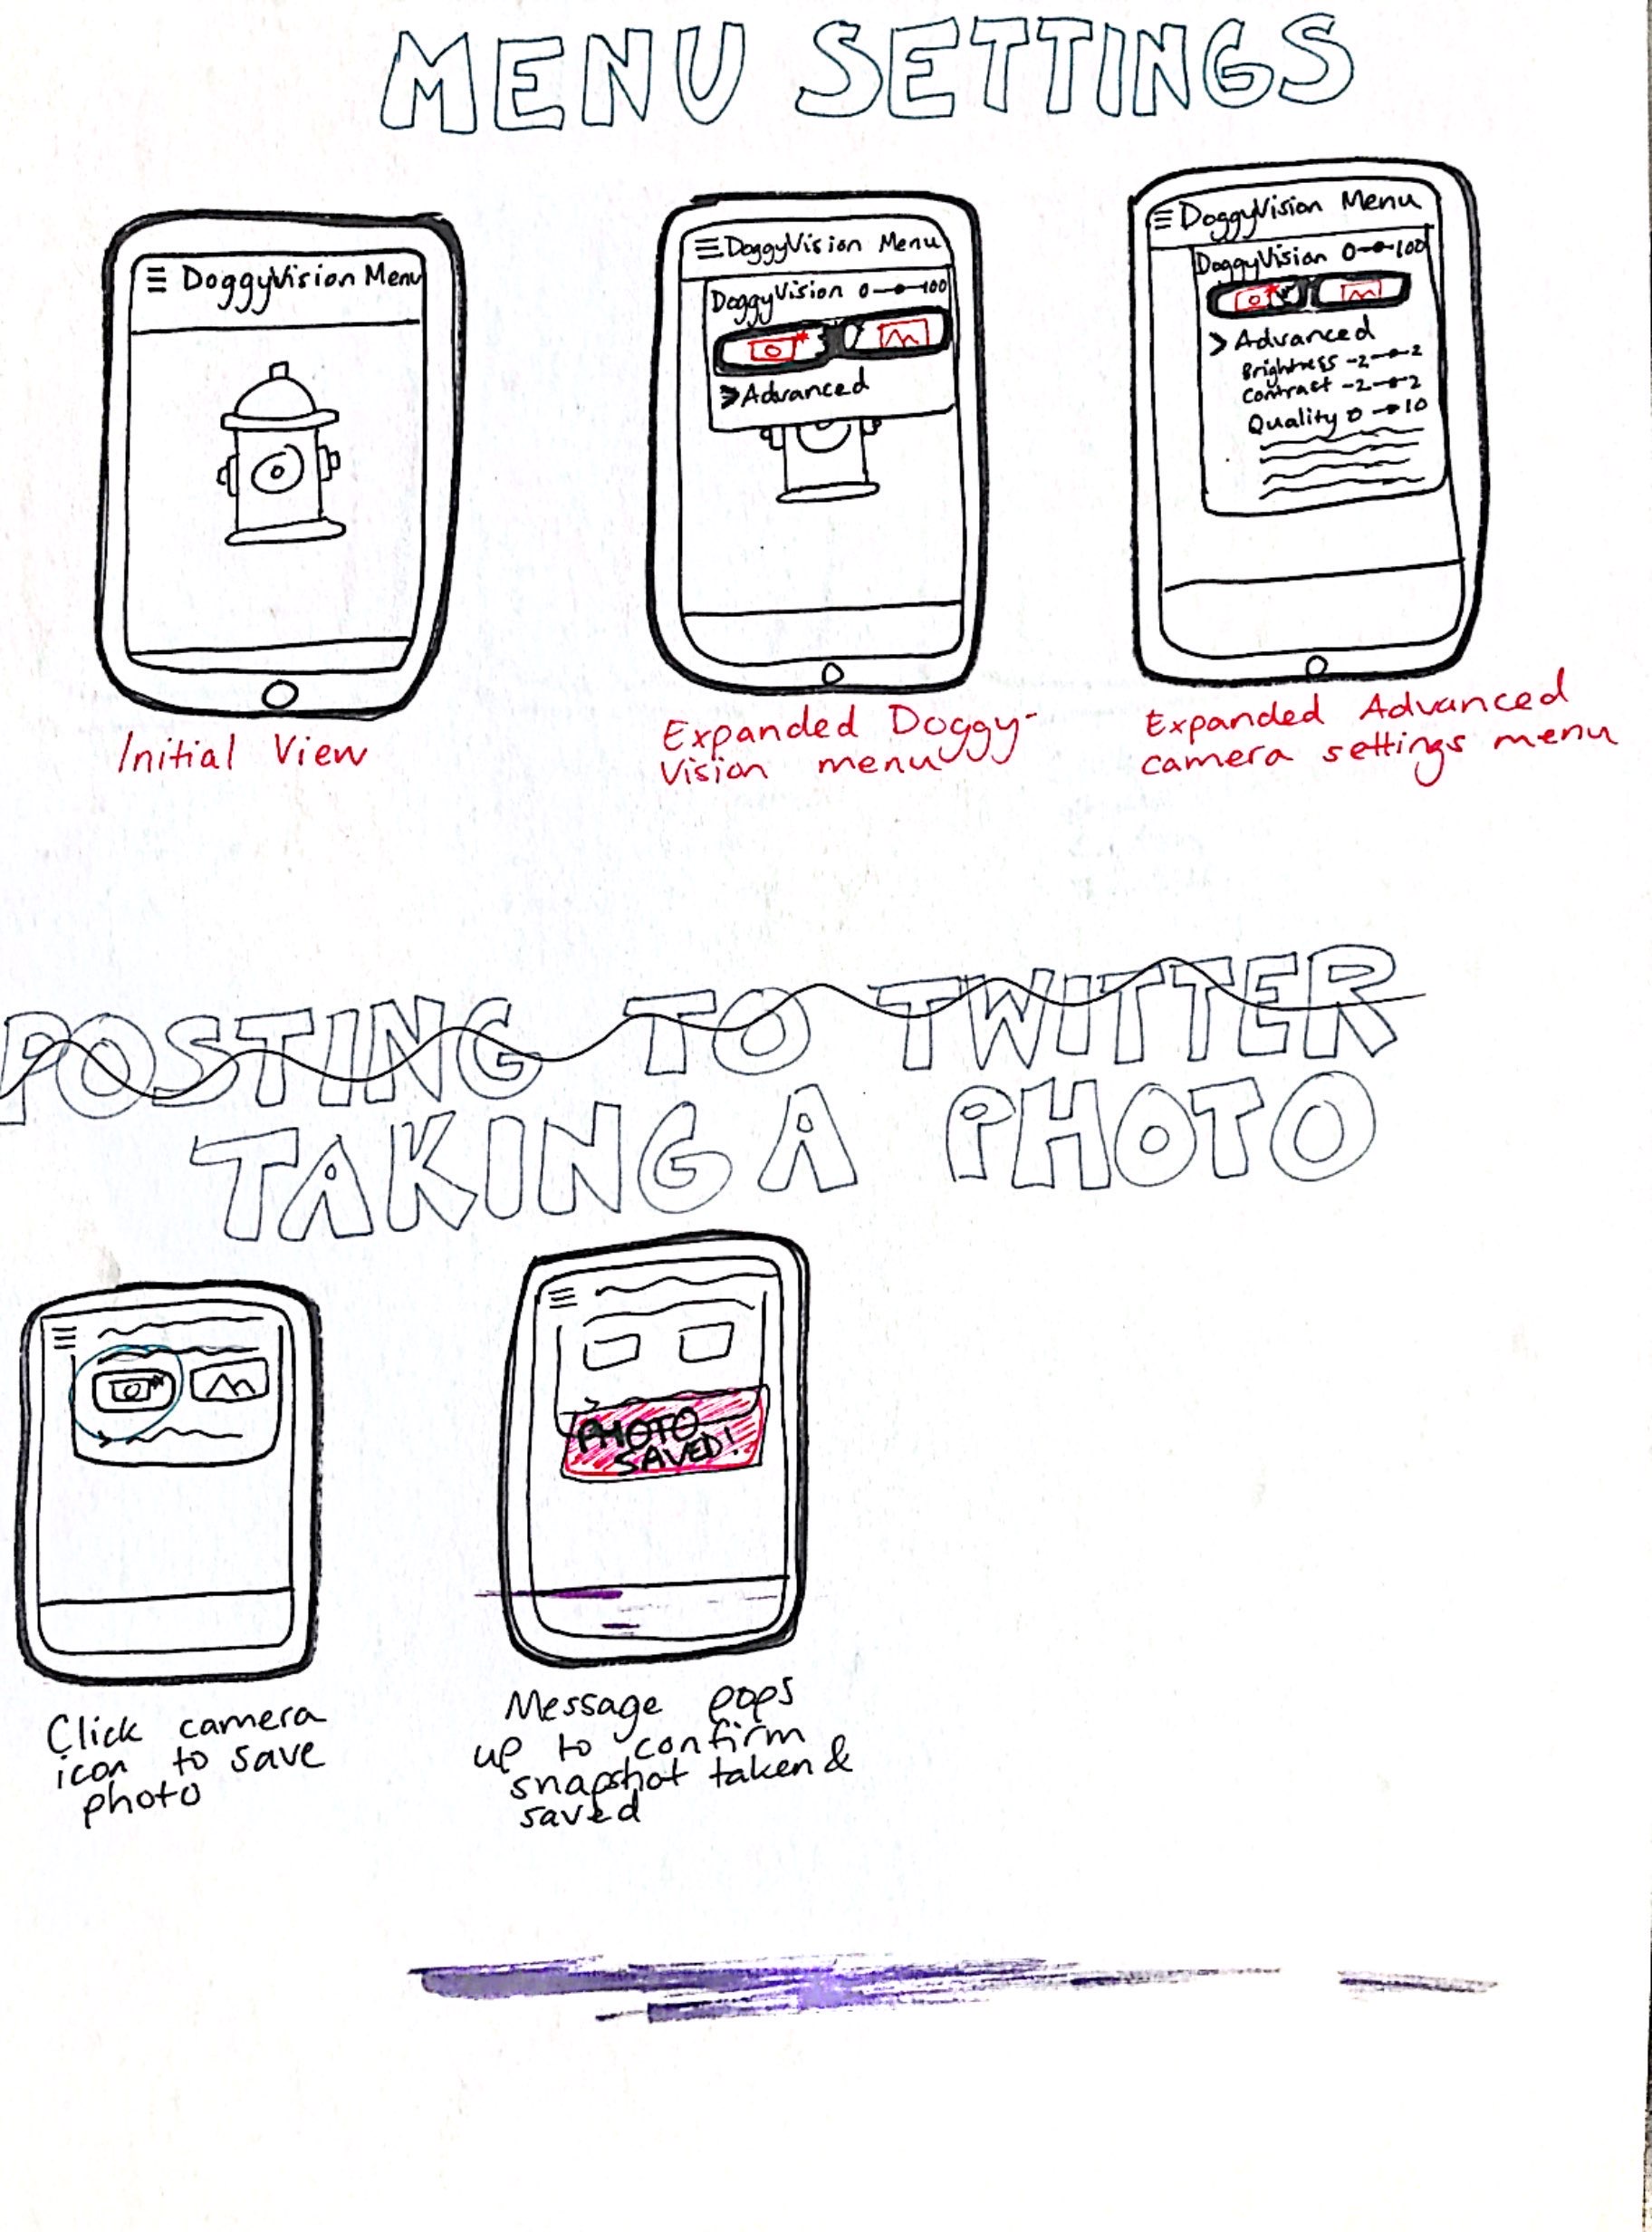 MENU SETTINGS
DoggyVision Menu
Initial View
DoggyVision Menu
DoggyVision 0 100
> Advanced
Expanded Doggy-
Vision menu
DoggyVision Menu
DoggyVision 0 100
> Advanced
Brightness -2 2
Contract -2 2
Quality 0 10
Expanded Advanced
camera settings menu
POSTING TO TWITTER
TAKING A PHOTO
Click camera
icon to save
photo
PHOTO
SAVED!
Message pops
up to confirm
snapshot taken &
saved